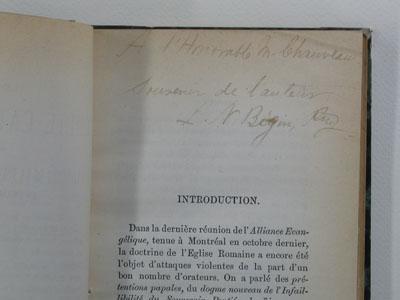 A l'Honorable M. Chauveau
Souvenir de l'auteur
L. N. Bégin,
INTRODUCTION.
Dans la dernière réunion de l'Alliance Evan-
gélique, tenue à Montréal en octobre dernier,
la doctrine de l'Eglise Romaine a encore été
l'objet d'attaques violentes de la part d'un
bon nombre d'orateurs. On a parlé des pré-
tentions papales, du dogme nouveau de l'Infail-
libilité du Souverain